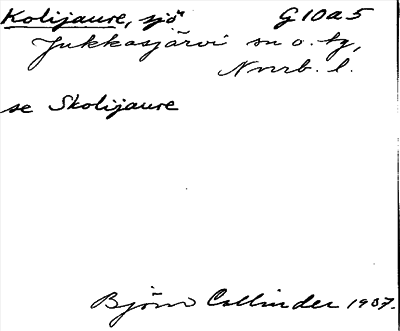 Kolijaure, sjö G10a5
Jukkasjärvi sn o. tg,
Nrrb. l.
se Skolijaure
Björn Collinder 1937.